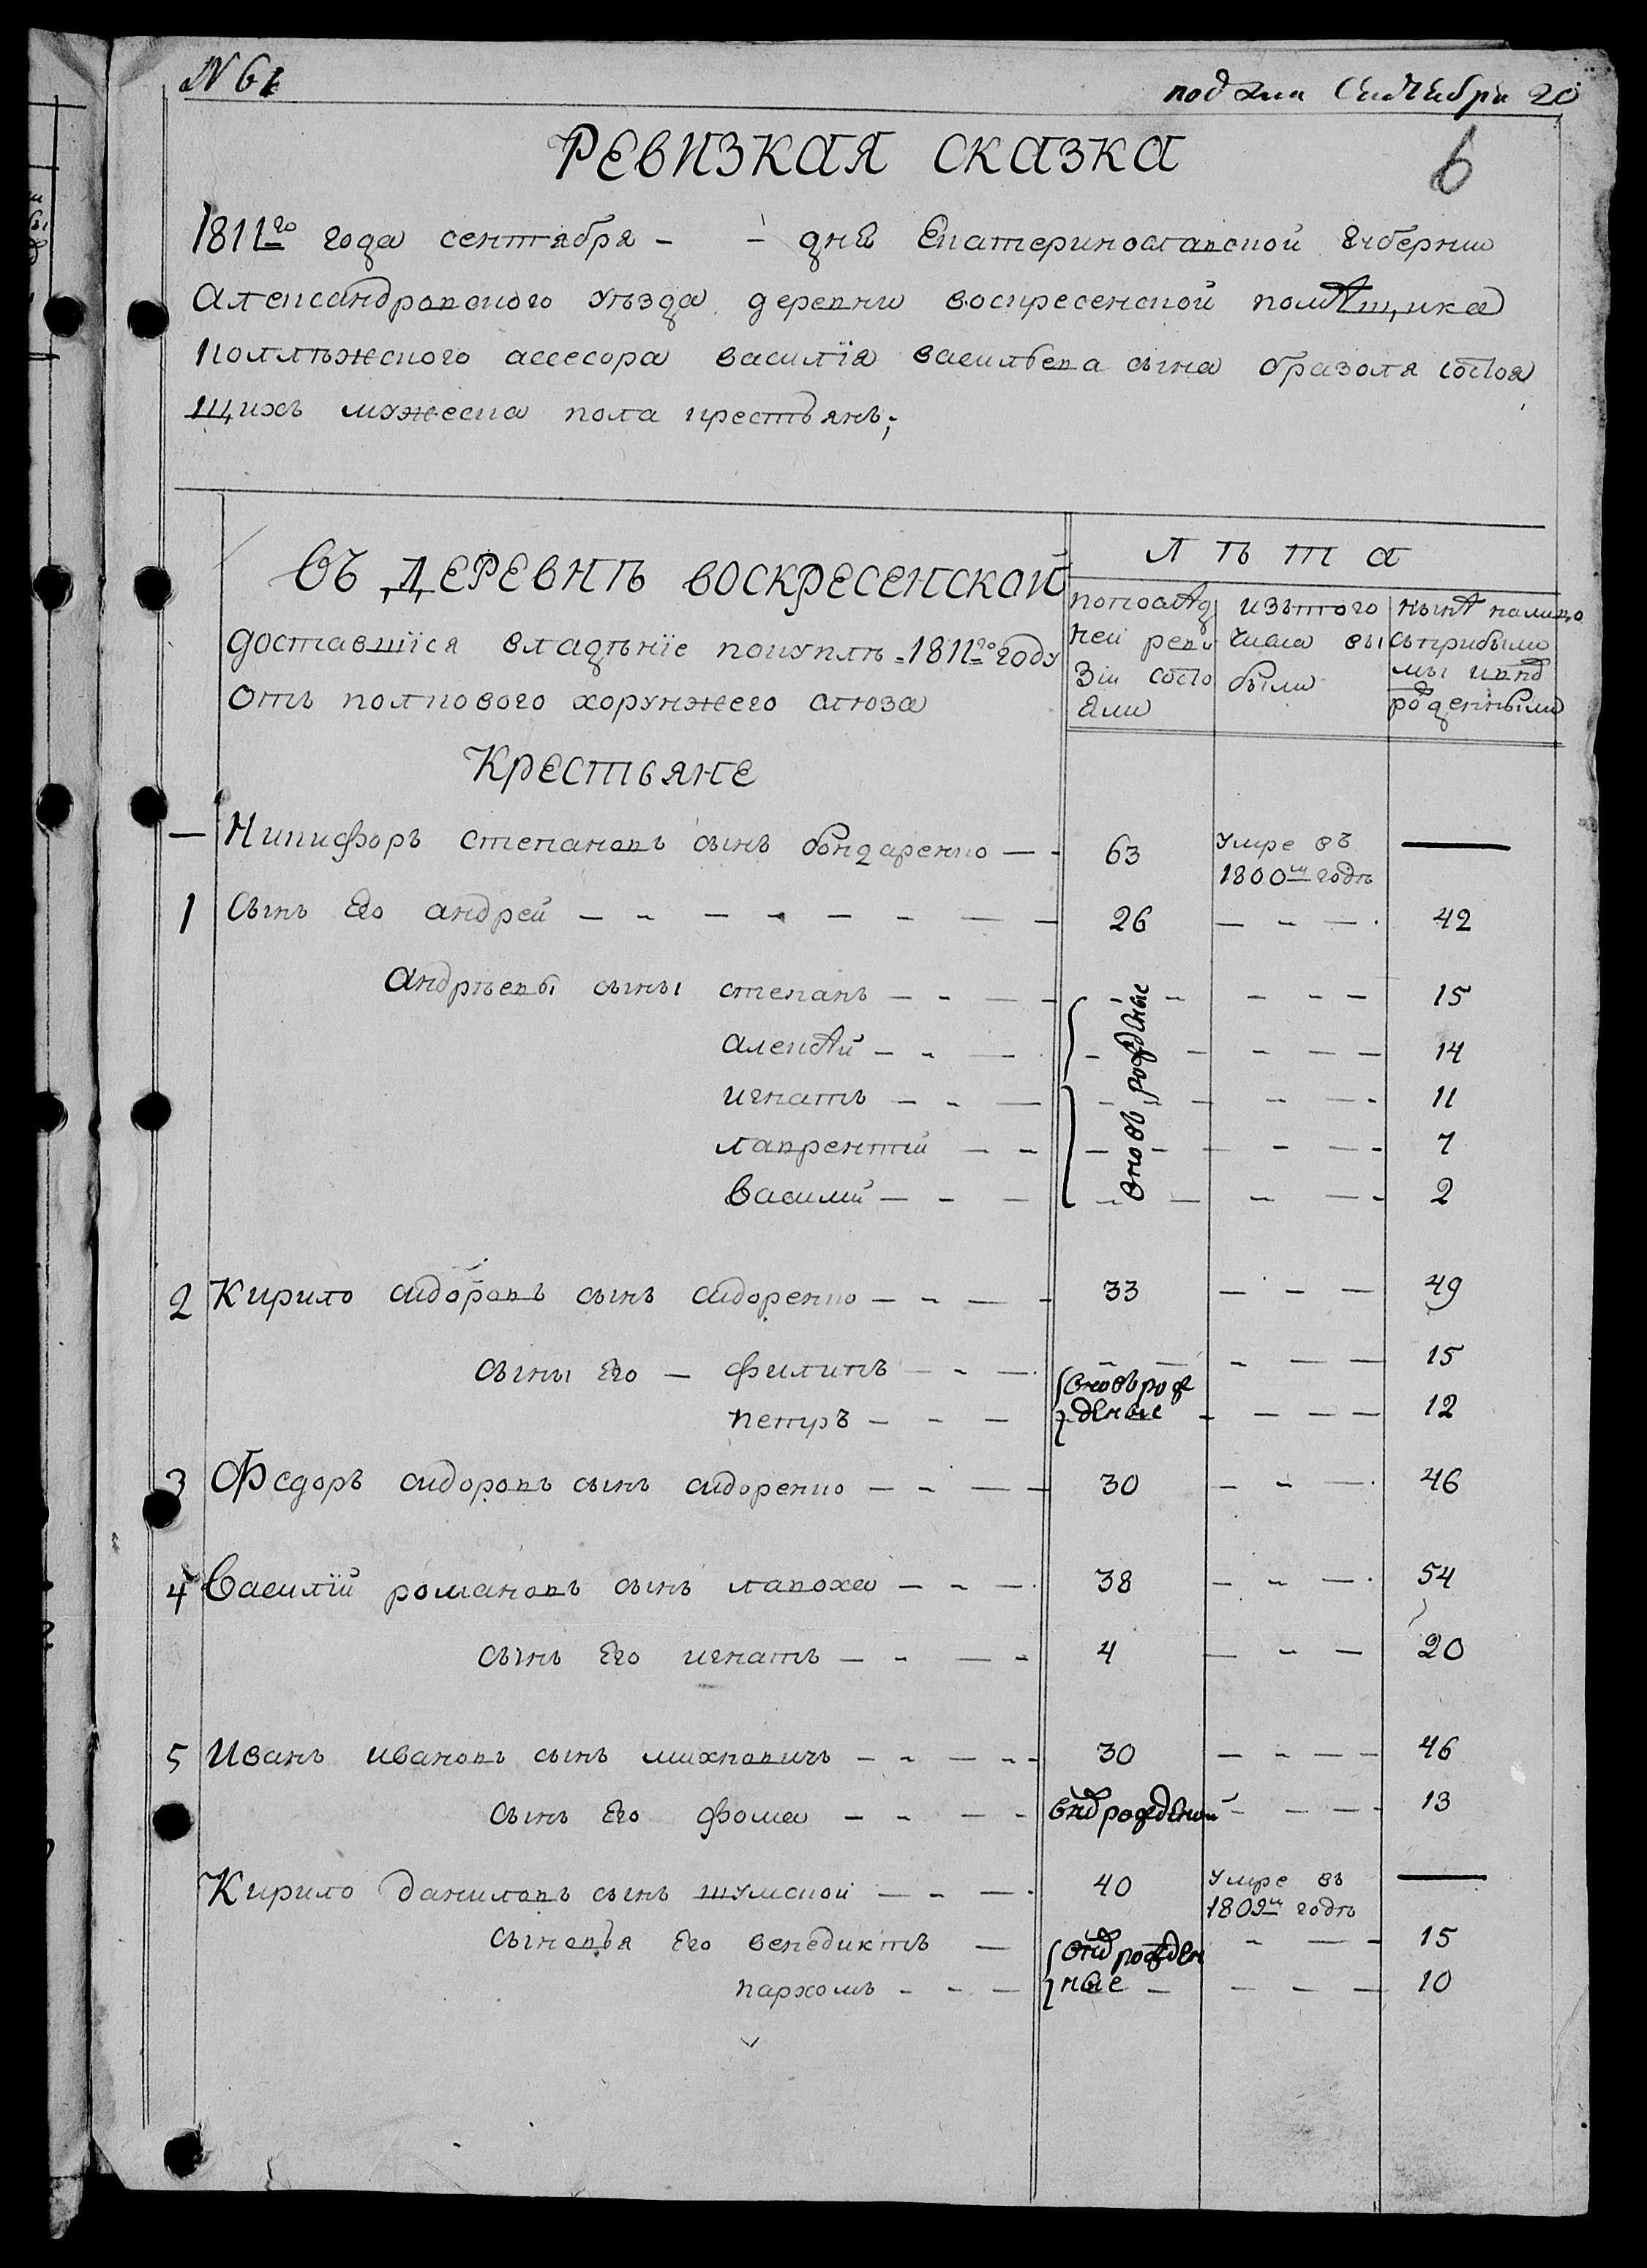 N 61
подана Сентебря 20
РЕВИЗКАЯ СКАЗКА
6
1811го года сентября - - дня Екатериносланской губернии
Александровского уѣзда деревни воскресенской помѣщика
коллѣжского асесора василїя васильева сына бразоля состоя
щихъ мужеска пола крестьянъ;
ВЪ ДЕРЕВНѢ ВОСКРЕСЕНСКОЙ
доставшїся владѣнїе покупкѣ 1811го году
отъ полкового хорунжего
Лѣта
по послѣд
ней реви
зіи состо
яли
изътого
числа вы
были
нынѣ налицо
съ прибылы
ми и внов
рожденными
Крестьяне
— Никифоръ степановъ сынъ бондаренко — - 63 Умре въ ———
1800м годѣ
1 Сынъ Его андрей — - — - — - — — 26 — - — 42
андрѣевы сыны степанъ — - — - - - - — — 15
алексѣй — - — - — - — — 14
игнатъ — - — - - — - — - 11
лаврентій — - — - — - — - 7
Василий — - — - — - — - 2
вновь рожденые
2 Кирило сидоровъ сынъ сидоренко — - — - 33 — - — 49
сыны Его — филипъ — - — - — - — — 15
петръ — - — - — — — 12
вновь рож
деные
3 Федоръ сидоровъ сынъ сидоренко — - — — 30 — - — 46
4 Василїй романовъ сынъ лапоха — - — 38 — - — 54
сынъ Его игнатъ — - — - 4 — - — 20
5 Иванъ ивановъ сынъ михновичъ — - — - - 30 — - — — 46
сынъ Его фома — - — - внов рожденой - — - 13
Кирило даниловъ сынъ шумской — - — 40 Умре въ ———
1809м годѣ
сыновья Его венедиктъ — внов рожден - — - 15
пархомъ - - — ные — — - — 10